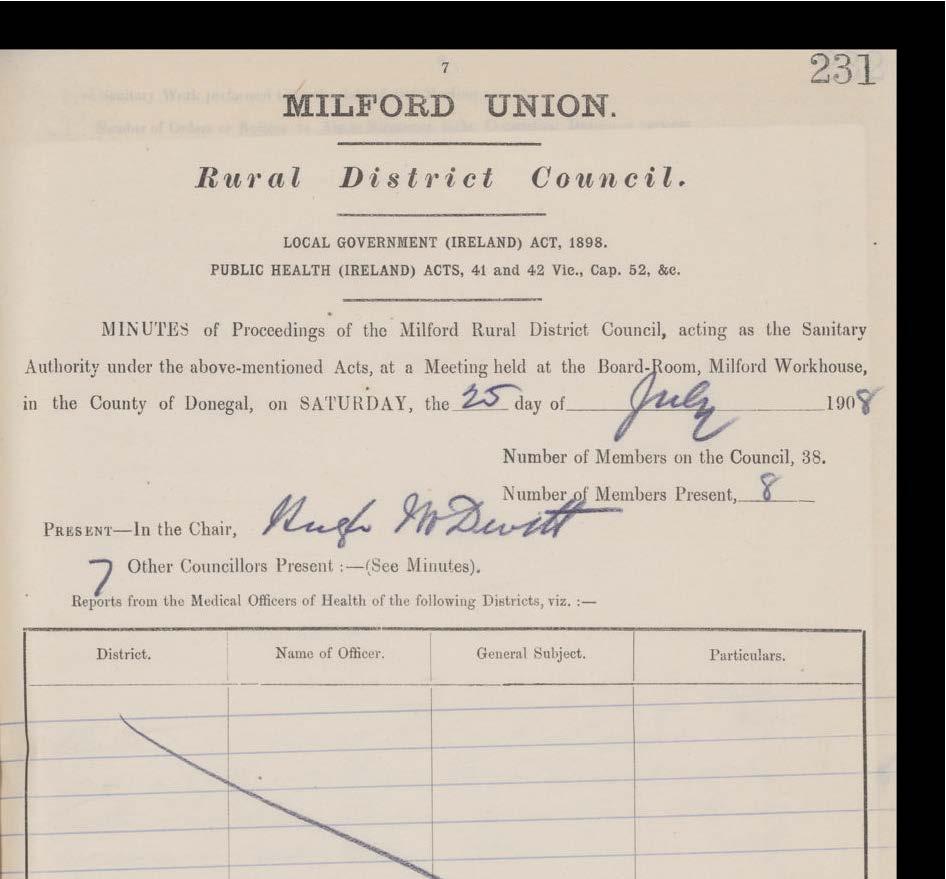 7
231
MILFORD UNION.
Rural District Council.
LOCAL GOVERNMENT (IRELAND) ACT, 1898.
PUBLIC HEALTH (IRELAND) ACTS, 41 and 42 Vic., Cap. 52, &c.
MINUTES of Proceedings of the Milford Rural District Council, acting as the Sanitary
Authority under the above-mentioned Acts, at a Meeting held at the Board-Room, Milford Workhouse,
in the County of Donegal, on SATURDAY, the 25 day of July 1908
Number of Members on the Council, 38.
Number of Members Present, 8
PRESENT—In the Chair, Hugh McDevitt
7 Other Councillors Present :—(See Minutes).
Reports from the Medical Officers of Health of the following Districts, viz. :—
District. Name of Officer. General Subject. Particulars.